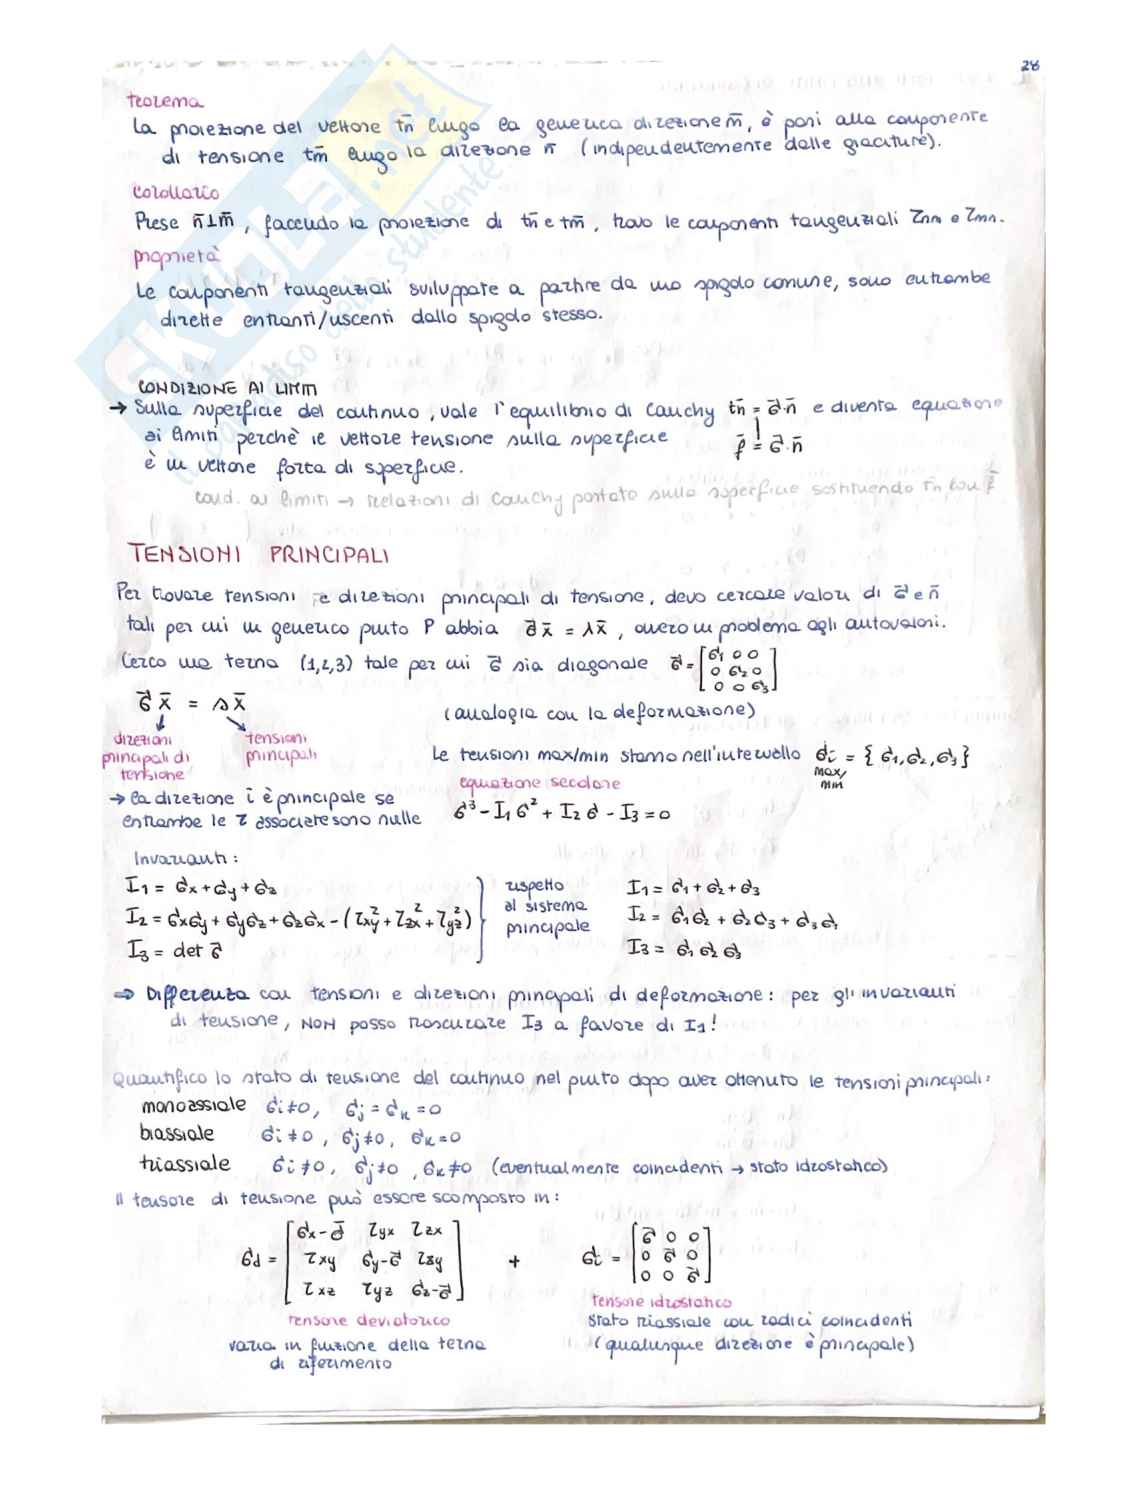 28
teorema
La proiezione del vettore tn̄ lungo la generica direzione m̄, è pari alla componente
di tensione tm̄ lungo la direzione n̄ (indipendentemente dalle giaciture).
corollario
Prese n̄⊥m̄, facendo la proiezione di tn̄ e tm̄, trovo le componenti tangenziali τnm e τmn.
proprietà
Le componenti tangenziali sviluppate a partire da uno spigolo comune, sono entrambe
dirette entranti/uscenti dallo spigolo stesso.
CONDIZIONE AI LIMITI
→ Sulla superficie del continuo, vale l'equilibrio di Cauchy tn̄ = σ̄·n̄ e diventa equazione
ai limiti perchè il vettore tensione sulla superficie f̄ = σ̄·n̄
è un vettore forza di superficie.
cond. ai limiti → relazioni di Cauchy portate sulla superficie sostituendo tn̄ con f̄
TENSIONI PRINCIPALI
Per trovare tensioni e direzioni principali di tensione, devo cercare valori di σ̄ e n̄
tali per cui un generico punto P abbia σ̄ x̄ = λx̄, ovvero un problema agli autovalori.
Cerco una terna (1,2,3) tale per cui σ̄ sia diagonale σ̄ = [σ1 0 0
0 σ2 0
0 0 σ3]
σ̄ x̄ = s x̄
(analogia con la deformazione)
direzioni principali di tensione
tensioni principali
Le tensioni max/min stanno nell'intervallo σi max/min = {σ1, σ2, σ3}
→ la direzione i è principale se
entrambe le τ associate sono nulle
equazione secolare
σ³ - I1 σ² + I2 σ - I3 = 0
Invarianti:
I1 = σx + σy + σz
I2 = σxσy + σyσz + σzσx - (τxy² + τzx² + τyz²)
I3 = det σ̄
rispetto
al sistema
principale
I1 = σ1 + σ2 + σ3
I2 = σ1σ2 + σ2σ3 + σ3σ1
I3 = σ1 σ2 σ3
⇒ Differenza con tensioni e direzioni principali di deformazione: per gli invarianti
di tensione, NON posso trascurare I3 a favore di I1!
Quantifico lo stato di tensione del continuo nel punto dopo aver ottenuto le tensioni principali:
monoassiale σi≠0, σj = σk = 0
biassiale σi ≠ 0, σj ≠ 0, σk = 0
triassiale σi ≠ 0, σj ≠ 0, σk ≠ 0 (eventualmente coincidenti → stato idrostatico)
Il tensore di tensione può essere scomposto in:
σd = [σx-σ̄ τyx τzx
τxy σy-σ̄ τzy
τxz τyz σz-σ̄]
+
σi = [σ̄ 0 0
0 σ̄ 0
0 0 σ̄]
tensore deviatorico
varia in funzione della terna
di riferimento
tensore idrostatico
stato triassiale con radici coincidenti
(qualunque direzione è principale)
SKUOLA.net
il paradiso dello studente